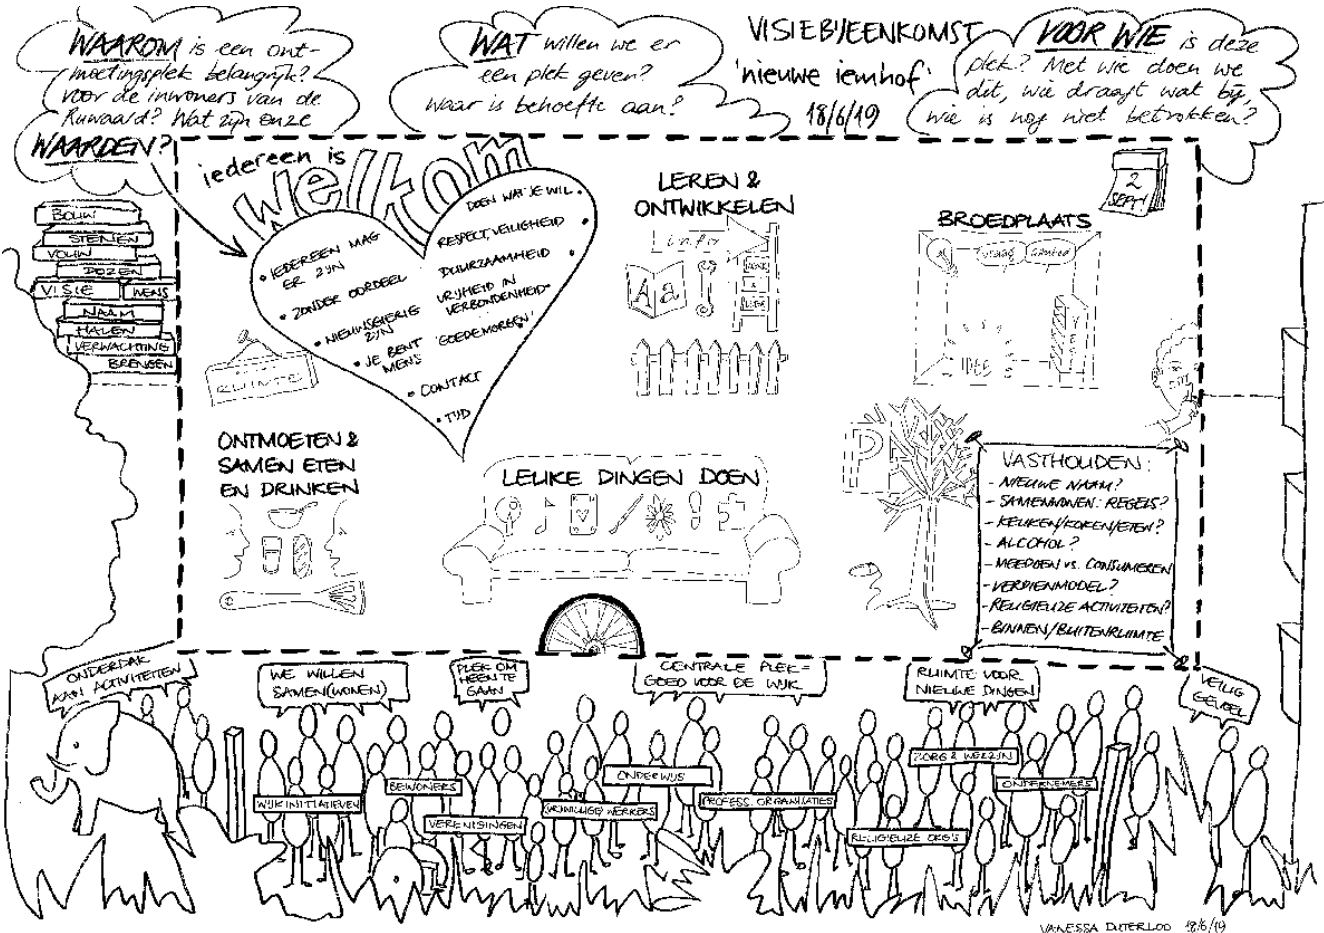 WAAROM is een ont-
moetingsplek belangrijk?
voor de inwoners van de
Ruwaard? Wat zijn onze
WAARDEN?
WAT willen we er
een plek geven?
Waar is behoefte aan?
VISIEBIJEENKOMST
'nieuwe iemhof'
18/6/19
VOOR WIE is deze
plek? Met wie doen we
dit, wie draagt wat bij,
wie is nog niet betrokken?
iedereen is
welkom
• IEDEREEN MAG
ER ZIJN
• ZONDER OORDEEL
• NIEUWSGIERIG
ZIJN
• JE BENT
MENS
• CONTACT
• TIJD
DOEN WAT JE WIL •
RESPECT, VEILIGHEID •
DUURZAAMHEID •
VRIJHEID IN
VERBONDENHEID •
'GOEDEMORGEN'
BOUW
STENEN
VOUW
DOZEN
VISIE
WENS
NAAM
HALEN
VERWACHTING
BRENGEN
RUIMTE
LEREN &
ONTWIKKELEN
info
Aa
2
SEPT!
BROEDPLAATS
vraag
aanbod
IDEE
ONTMOETEN &
SAMEN ETEN
EN DRINKEN
LEUKE DINGEN DOEN
P
VASTHOUDEN:
- NIEUWE NAAM?
- SAMENWONEN: REGELS?
- KEUKEN/KOKEN/ETEN?
- ALCOHOL?
- MEEDOEN vs. CONSUMEREN
- VERDIENMODEL?
- RELIGIEUZE ACTIVITEITEN?
- BINNEN/BUITENRUIMTE
ONDERDAK
AAN ACTIVITEITEN
WE WILLEN
SAMEN(WONEN)
PLEK OM
HEEN TE
GAAN
CENTRALE PLEK =
GOED VOOR DE WIJK
RUIMTE VOOR
NIEUWE DINGEN
VEILIG
GEVOEL
WIJKINITIATIEVEN
BEWONERS
VERENIGINGEN
VRIJWILLIGE WERKERS
ONDERWIJS
PROFESS. ORGANISATIES
ZORG & WELZIJN
RELIGIEUZE ORG'S
ONDERNEMERS
VANESSA DIJTERLOO 18/6/19